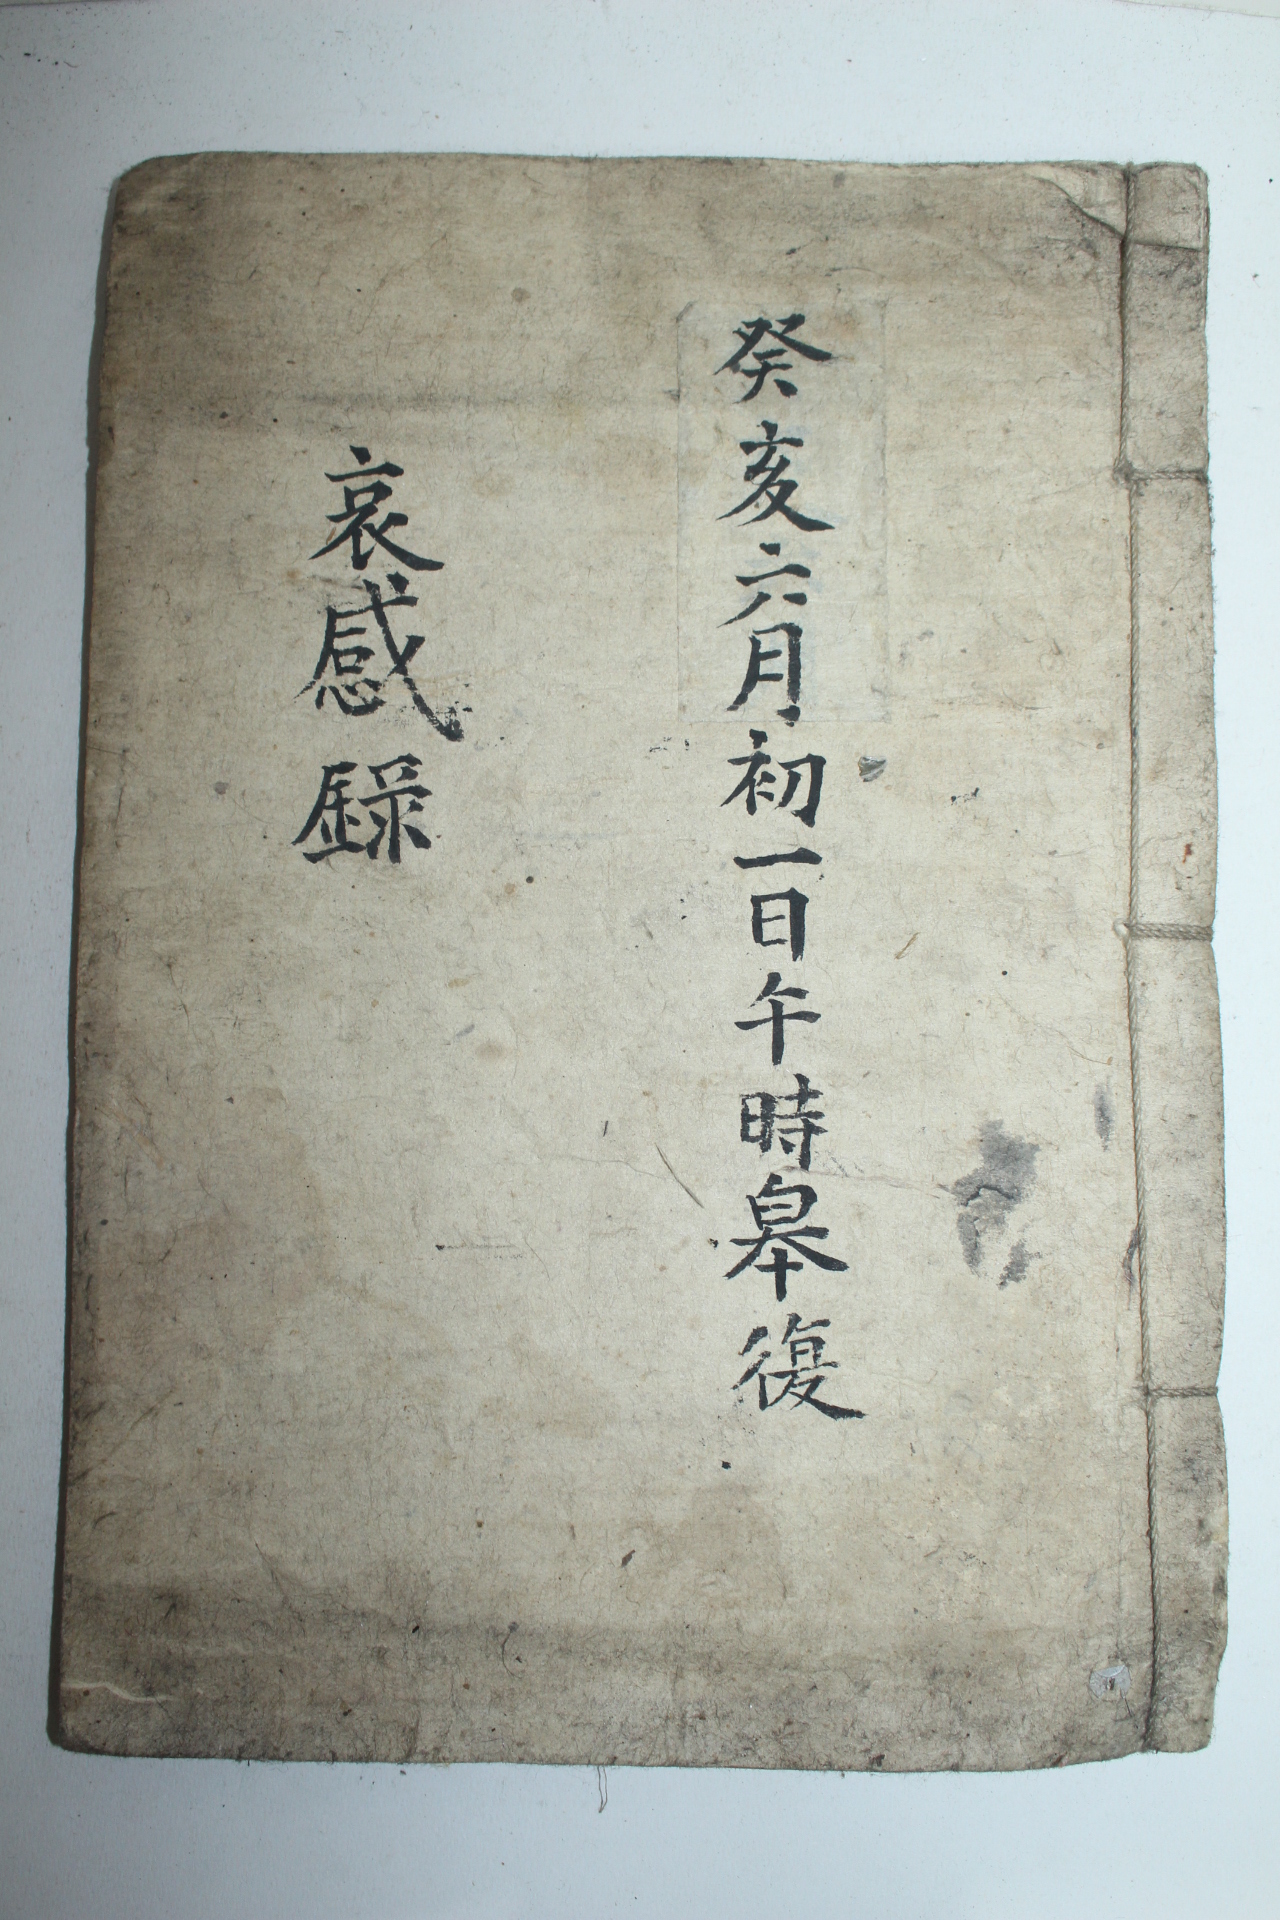 癸亥六月初一日午時皋復
哀感錄